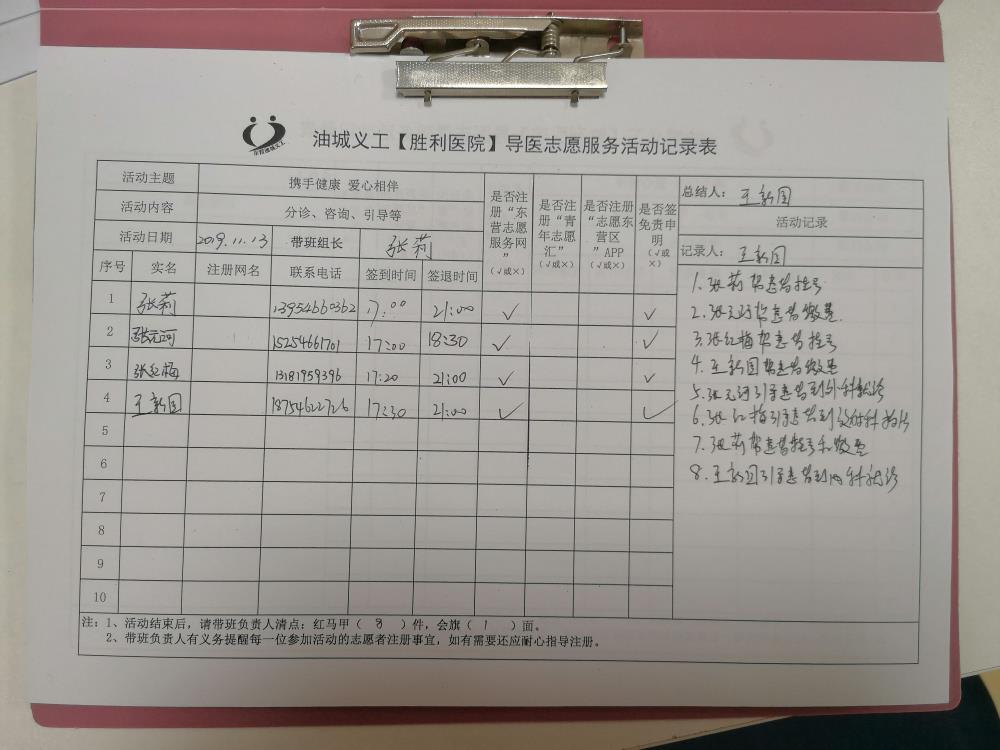 油城义工【胜利医院】导医志愿服务活动记录表
活动主题 携手健康 爱心相伴
活动内容 分诊、咨询、引导等
活动日期 2019.11.13 带班组长 张莉
序号 实名 注册网名 联系电话 签到时间 签退时间
是否注册“东营志愿服务网” (√或×)
是否注册“青年志愿汇” (√或×)
是否注册“志愿东营区”APP (√或×)
是否签免责申明 (√或×)
总结人: 王新国
活动记录
记录人: 王新国
1 张莉 13954660362 17:00 21:00 √ √
2 张元河 15254661701 17:00 18:30 √ √
3 张红梅 13181959396 17:20 21:00 √ √
4 王新国 18754622726 17:30 21:00 √ √
5
6
7
8
9
10
1.张莉帮患者挂号
2.张元河帮患者缴费.
3.张红梅帮患者挂号
4.王新国帮患者缴费
5.张元河引导患者到外科就诊
6.张红梅引导患者到放射科拍片
7.张莉帮患者挂号和缴费
8.王新国引导患者到内科就诊
注:1、活动结束后,请带班负责人清点:红马甲( 8 )件,会旗( 1 )面。
2、带班负责人有义务提醒每一位参加活动的志愿者注册事宜,如有需要还应耐心指导注册。